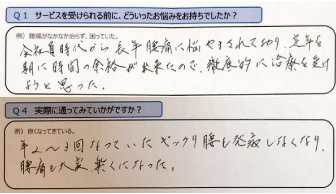 Q1 サービスを受けられる前に、どういったお悩みをお持ちでしたか？
例）腰痛がなかなか治らず、困っていた。
会社員時代から長年腰痛に悩やまされており、定年を
期に時間の余裕が出来たので、徹底的に治療を受け
ようと思った。
Q4 実際に通ってみていかがですか？
例）良くなってきている。
年2～3回なっていたギックリ腰も発症しなくなり、
腰痛も大変、楽くになった。